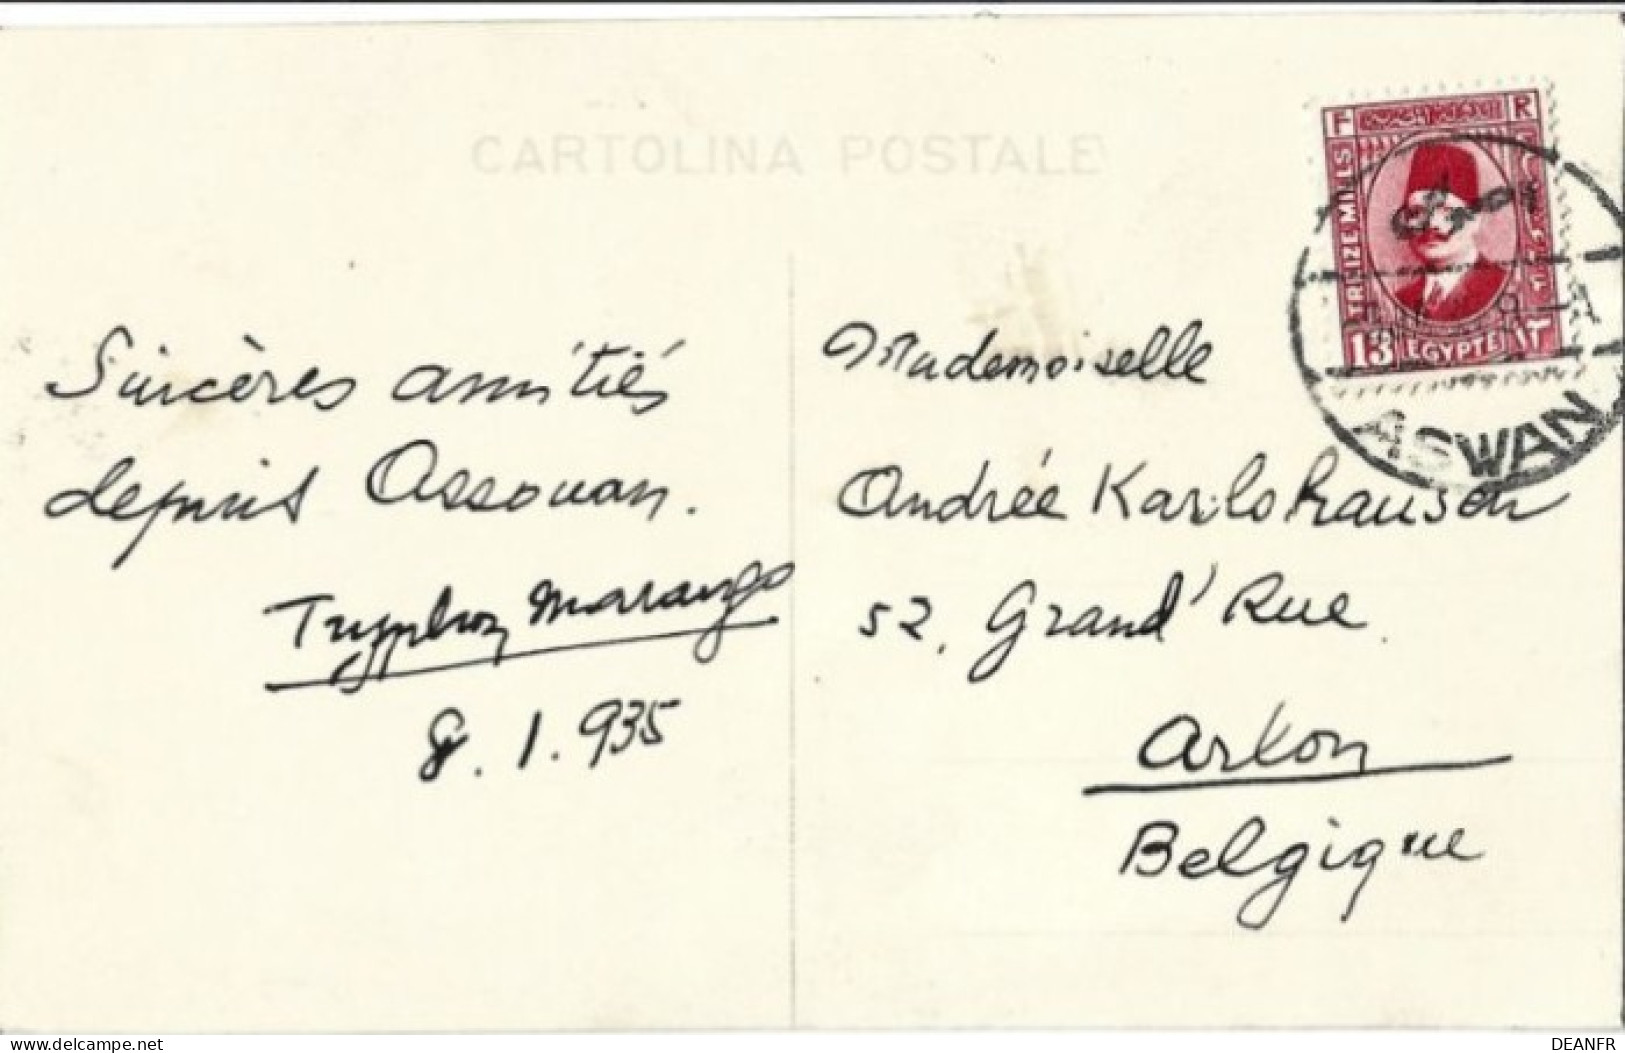 CARTOLINA POSTALE
F R
TREIZE MILLS
13 EGYPTE ١٣
ASWAN
Sincères amitiés
depuis Assouan.
Tryphon Marango
8.1.935
Mademoiselle
Andrée Karlshausen
52, Grand'Rue
Arlon
Belgique
delcampe.net
DEANFR